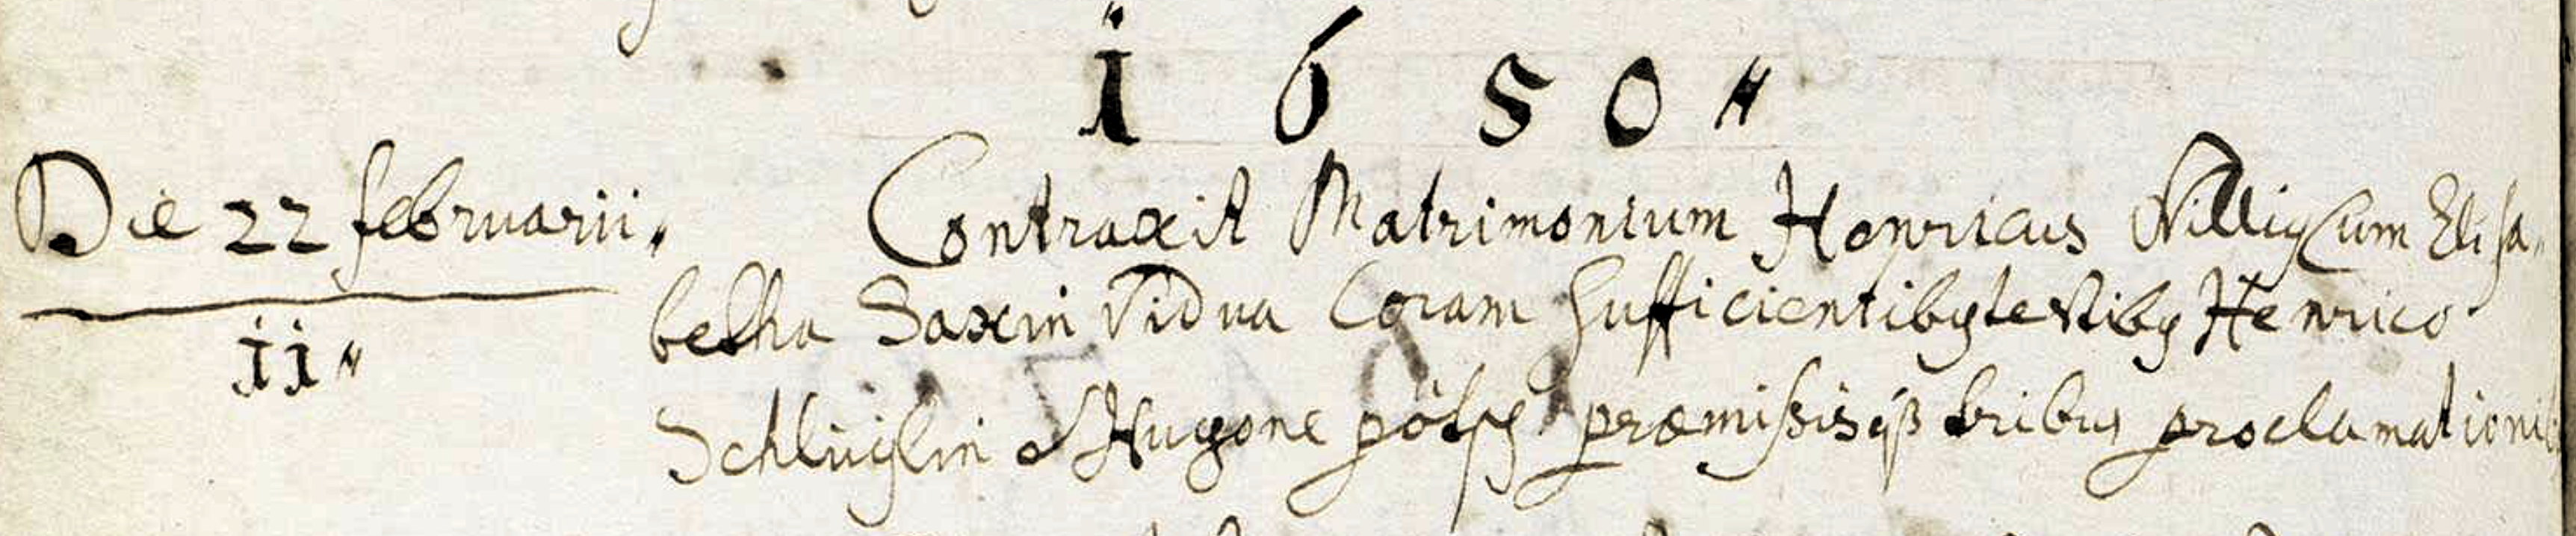 1650 〃
Die 22 februarii. Contraxit Matrimonium Henricus Villig Cum Elisa-
ii 〃
betha Saxin Vidua Coram Sufficientibꝰ testibꝰ Henrico
Hugone præmißisqȝ tribus proclamationi